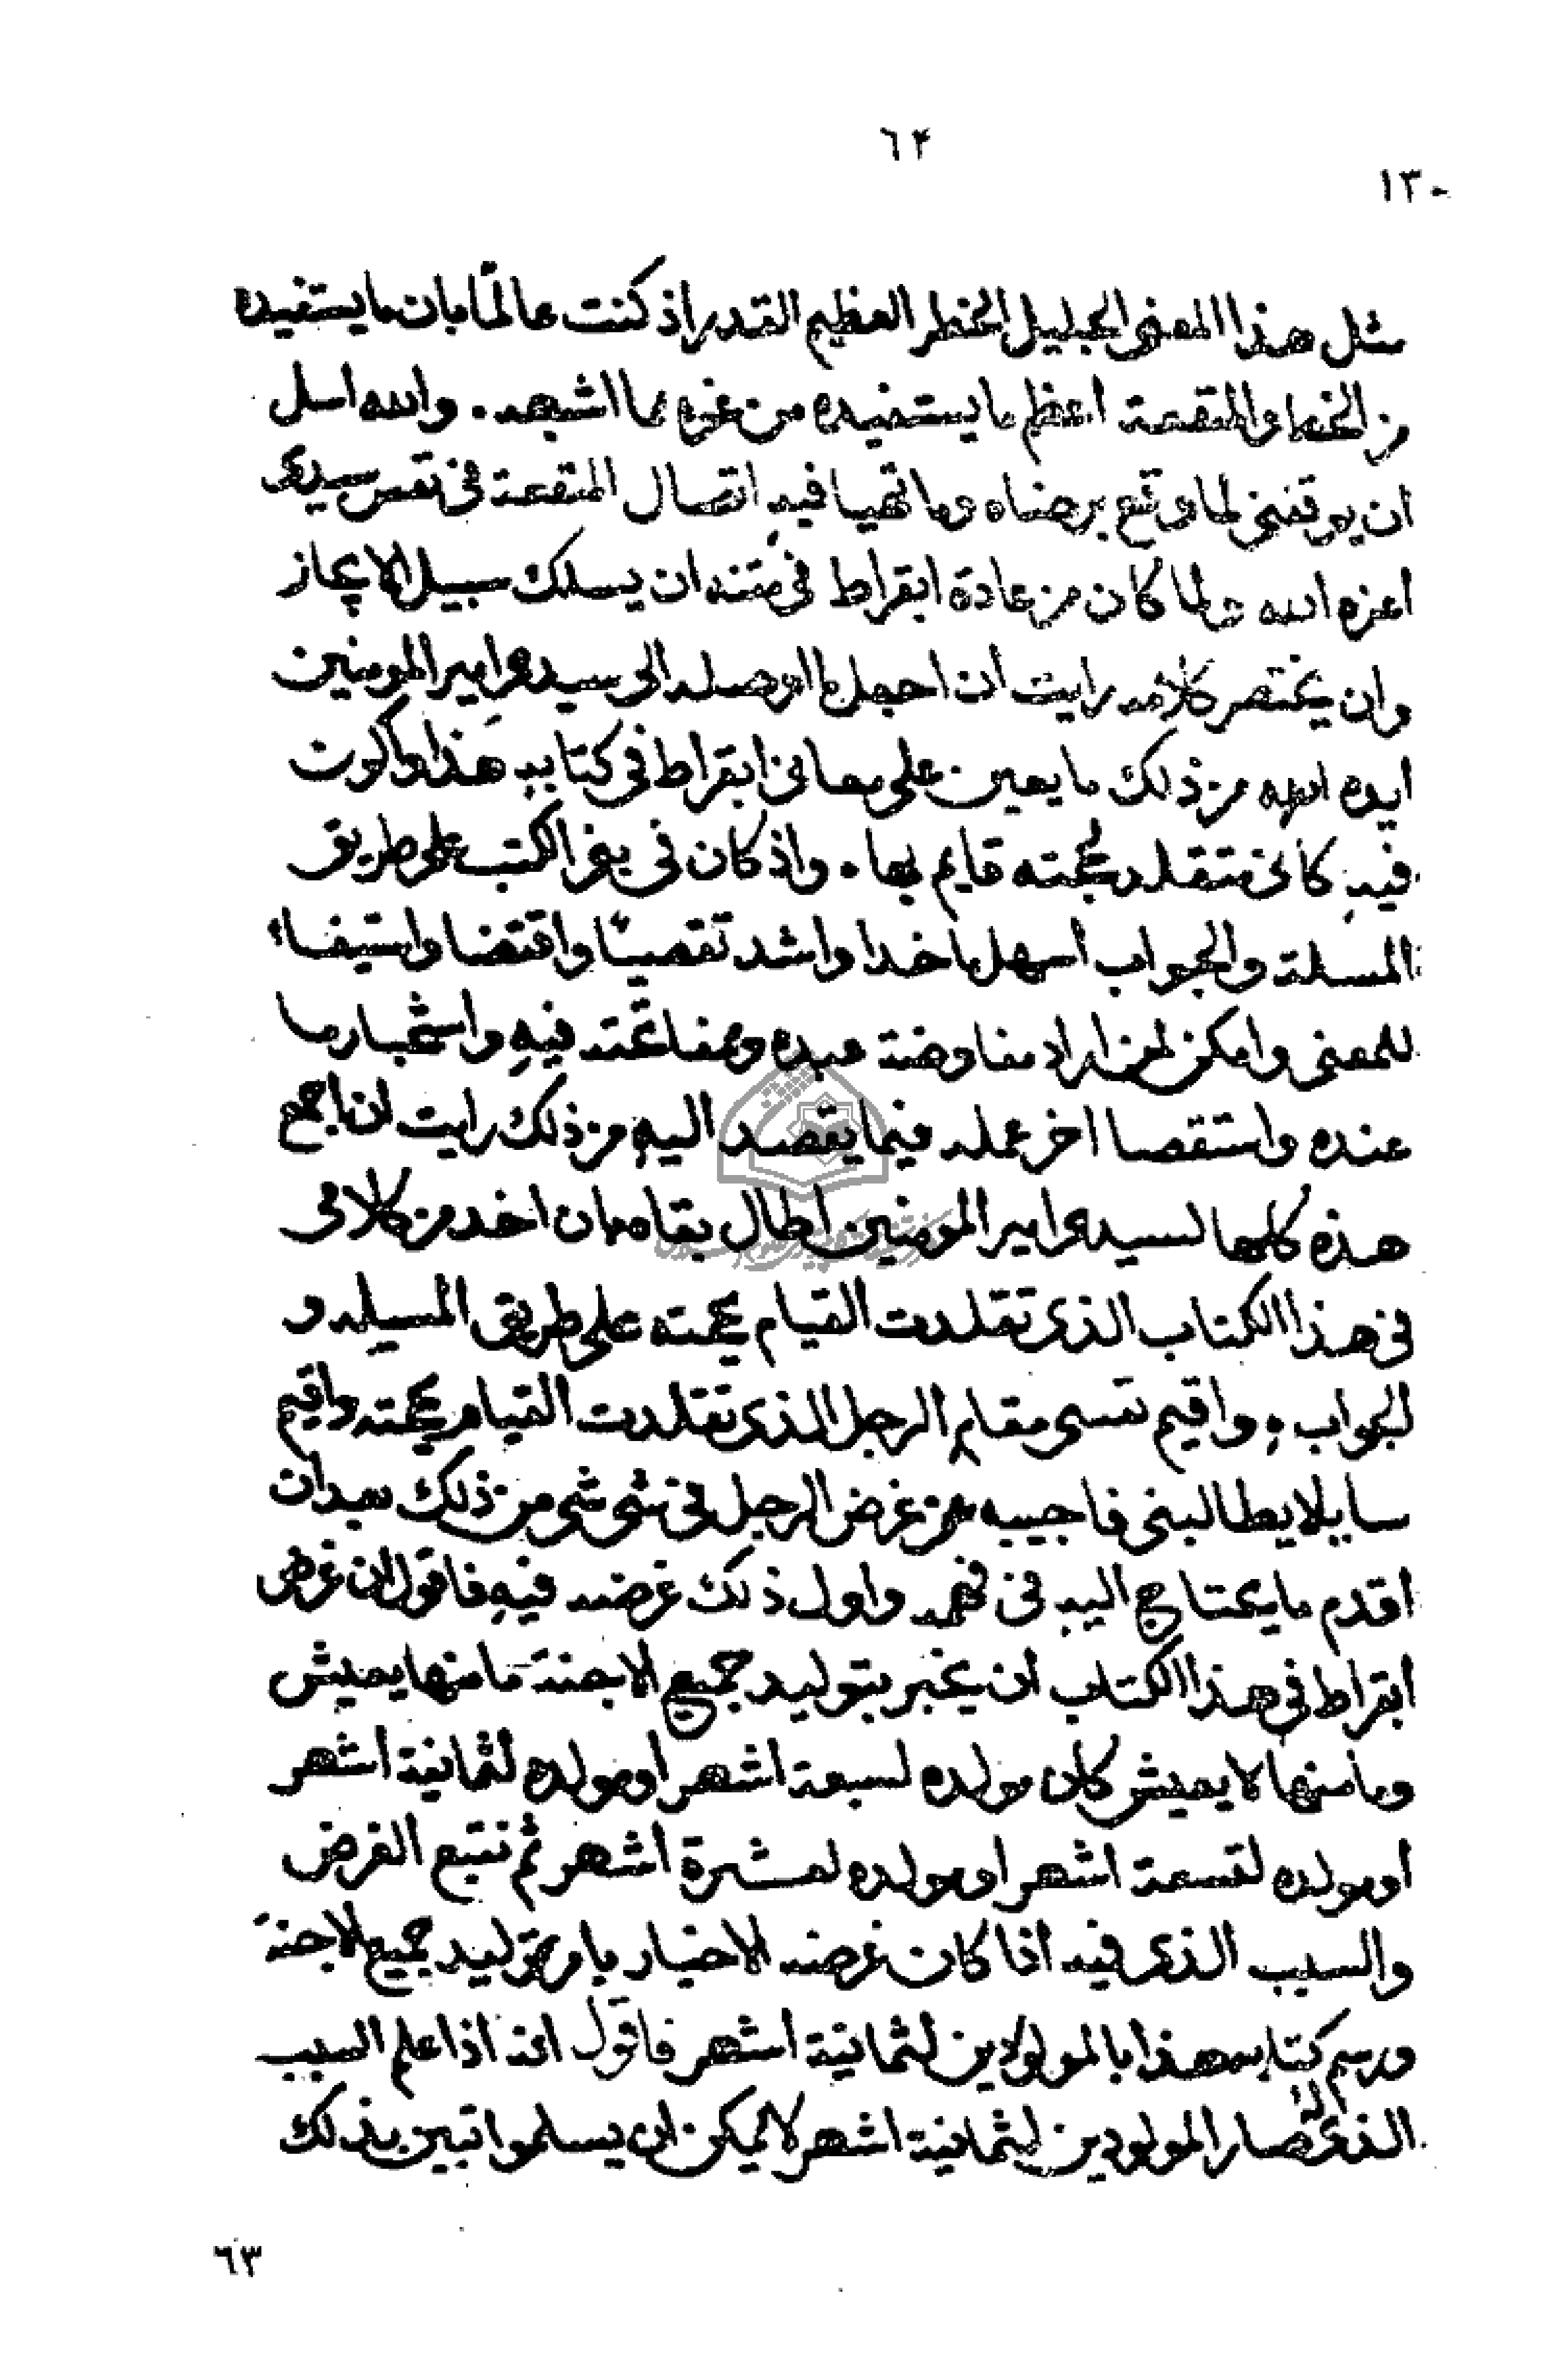 ٦٤
١٣٠
مثل هذا المعنى الجليل الخطر العظيم القدر اذ كنت عالمًا بان ما يستفيده
من والمنفعة اعظم ما يستفيده من غيره مما اشبهه . والله اسل
ان يوفقني لما وقع برضاه وما تهيا فيه اتصال المنفعة في نفس سيدي
اعزه الله ولما كان من عادة ابقراط في ان يسلك سبيل الايجاز
وان يختصر كلامه رايت ان اجعل ما اوصله الى سيدي امير المومنين
ايده الله من ذلك ما يعين على معاني ابقراط في كتابه هذا واكون
فيه كاني متقلد بحجته قايم بها . واذ كان في بعض الكتب على طريق
المسلة والجواب اسهل ماخدا واشد تقصيًا واقتضا واستيفاء
للمعنى وامكن لمن اراد مفاوضة عبده ومفاتحته فيه واستخبار ما
عنده واستقصا اخر عمله فيما يقصد اليه من ذلك رايت ان اجمع
هذه كلها لسيدي امير المومنين اطال بقاه بان اخد من كلامي
في هذا الكتاب الذي تقلدت القيام بحجته على طريق المسيله و
الجواب . واقيم نفسي مقام الرجل الذي تقلدت القيام بحجته واقيم
سايلا يطالبني فاجيبه عن غرض الرجل في شي شي من ذلك بعد ان
اقدم ما يحتاج اليه في فهمه واول ذلك غرضه فيه فاقول ان غرض
ابقراط في هذا الكتاب ان يخبر بتوليد جميع الاجنة ما منها يعيش
وما منها لا يعيش كان مولده لسبعة اشهر او مولده لثمانية اشهر
او مولده لتسعة اشهر او مولده لعشرة اشهر ثم نتبع الغرض
والسبب الذي فيه اذا كان غرضه الاخبار بامر توليد جميع الاجنة
ورسم كتابه هذا بالمولودين لثمانية اشهر فاقول انه اذا علم السبب
الذي له صار المولودين لثمانية اشهر لا يمكن ان يسلموا تبين بذلك
٦٣